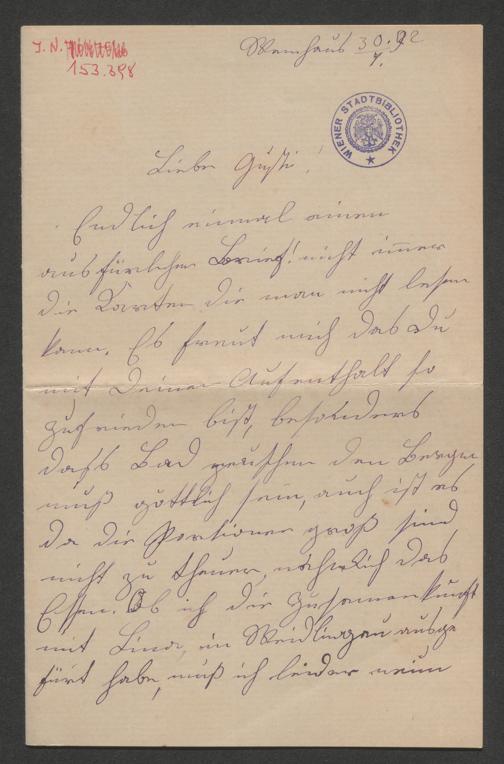 J. N.
153.398
Weinhaus 30.92
7.
WIENER STADTBIBLIOTHEK
Liebe Gusti!
Endlich einmal einen
ausfürlichen Brief! nicht immer
die Karten die man nicht lesen
kann. Es freut mich das Du
mit Deinen Aufenthalt so
zufrieden bist, besonders
dass Bad zwischen den Bergen
muß göttlich sein, auch ist es
da die Portionen groß sind
nicht zu theuer, nähmlich das
Essen. Ob ich die Zusamenkunft
mit Lina, in Weidlingau ausge
fürt habe, muß ich leider nein